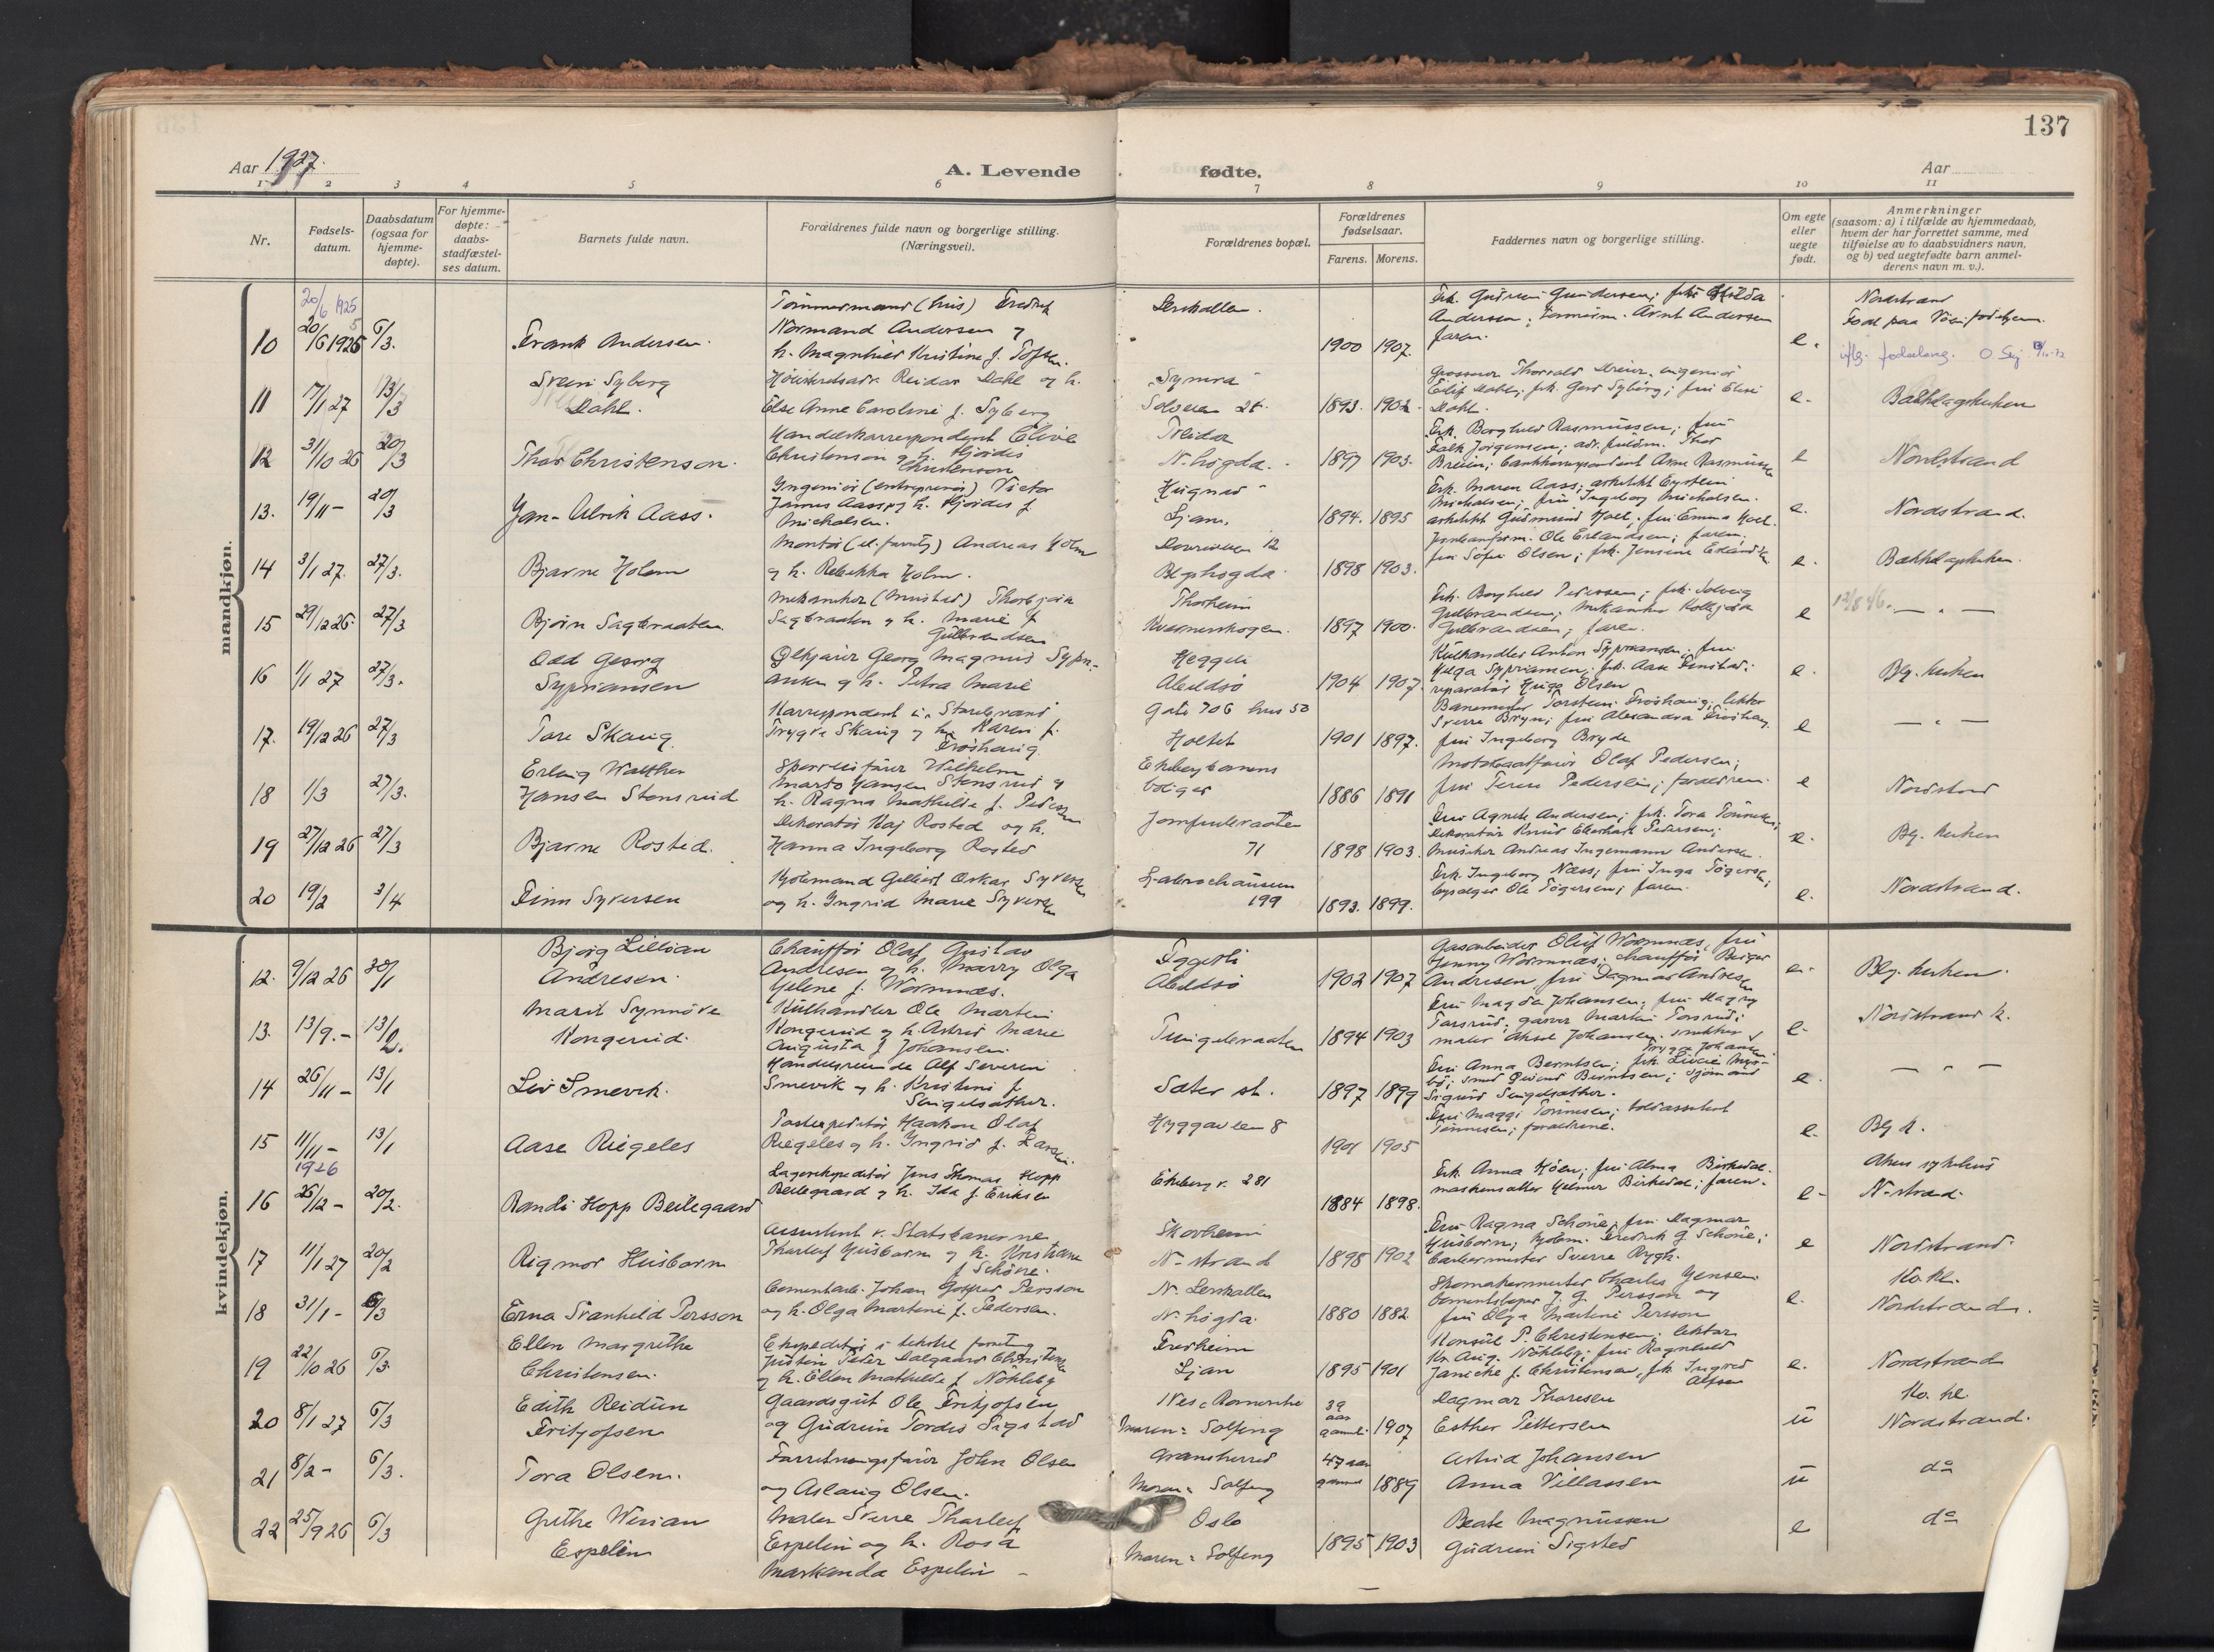 137
Aar 1927.
A. Levende
fødte.
Aar
1 2 3 4 5 6 7 8 9 10 11
Nr.
Fødsels-
datum.
Daabsdatum
(ogsaa for
hjemme-
døpte).
For hjemme-
døpte:
daabs-
stadfæstel-
ses datum.
Barnets fulde navn.
Forældrenes fulde navn og borgerlige stilling.
(Næringsvei).
Forældrenes bopæl.
Forældrenes
fødselsaar.
Farens. Morens.
Faddernes navn og borgerlige stilling.
Om egte
eller
uegte
født.
Anmerkninger
(saasom: a) i tilfælde av hjemmedaab,
hvem der har forrettet samme, med
tilføielse av to daabsvidners navn,
og b) ved uegtefødte barn anmel-
derens navn m. v.).
mandkjøn.
20/6 1925
10 20/6 1925 6/3. Frank Andersen.
Tømmermand (hus) Fredrik
Normand Andersen og
h. Magnhild Kristine f. Tofsen.
Lerskallen.
1900 1907.
Andersen; Arnt Andersen
faren.
e.
Nordstrand
11 17/1 27 13/3 Svein Syberg
Dahl.
Høiesteretsadv. Reidar Dahl og h.
Else Anne Caroline f. Syberg
Solveien 25.
1893. 1902.
Eilif Dahl; frk. Gerd Syberg; fru Elise
Dahl.
e.
Bækkelagskirken
12 31/10 26 20/3 Thor Christenson.
Handelskorrespondent Clive
Christenson og h. Hjørdis
Christenson
N. høgda.
1897 1903.
Frk. Borghild Rasmussen; fru
Falk Jørgensen; adv. fuldm. Thor
Breien; bankkorrespondent Arne Rasmussen
e
Nordstrand
13. 19/11 - 20/3 Jan-Ulrik Aass.
Ingeniør (entreprenør) Victor
James Aass og h. Hjørdis f.
Michelsen.
Ljan.
1894. 1895
Frk. Maren Aass; arkitekt Eystein
Michelsen; fru Ingeborg Michelsen.
arkitekt Gudmund Hoel; fru Emma Hoel.
e.
Nordstrand.
14 3/1 27. 27/3. Bjarne Holm
Montør (el. forretn) Andreas Holm
og h. Rebekka Holm.
Dovreveien 12
Bkl.høgda
1898 1903.
Ole Erlandsen; faren;
fru Sofie Olsen; frk. Jensine Erlandsen
e.
Bækkelagskirken.
15 29/12 26. 27/3 Bjørn Sagbraaten.
Mekaniker (Mustad) Thorbjørn
Sagbraaten og h. Marie f.
Gulbrandsen
Thorheim
1897 1900.
Frk. Borghild Pedersen; frk. Solveig
Gulbrandsen; mekaniker Kolbjørn
Gulbrandsen; faren.
e
— " —
16 1/1 27 27/3. Odd Georg
Sypriansen
Georg Magnus Sypri-
ansen og h. Petra Marie
Heggeli
Abildsø
1904 1907.
Kulhandler Anton Sypriansen; fru
Helga Sypriansen; frk. Aase Finstad;
reparatør Hugo Olsen
e.
Bkg. kirken
17. 19/12 26 27/3 Tore Skaug
Korrespondent i Storebrand
Trygve Skaug og h. Karen f.
Frøshaug.
Gate 706 hus 50
Holtet
1901 1897.
Banemester Torstein Frøshaug; lektor
Sverre Bryn; fru Alexandra Frøshaug
fru Ingeborg Bryde
e
— " —
18 1/3 27/3. Erling Walther
Hansen Stensrud
Wilhelm
Hansen Stensrud og
h. Ragna Mathilde f. Pedersen
Ekebergbanens
boliger
1886 1891
Olaf Pedersen;
fru Terese Pedersen; forældrene.
e
Nordstrand
19 27/12 26 27/3 Bjarne Rosted.
Dekoratør Kaj Rosted og h.
Hanna Ingeborg Rosted
Jomfrubraaten
71
1898 1903.
Fru Agnete Andersen; frk. Tora Tønnesen;
Dekoratør Knud Eberhard Pedersen;
musiker Andreas Ingemann Andersen.
e.
Bkg. kirken
20 19/2 3/4 Finn Syversen
Gilbert Oskar Syversen
og h. Ingrid Marie Syversen
Ljabrochausseen
199
1893. 1899.
Frk. Ingeborg Næss; fru Inga Tøgersen;
Ole Tøgersen; faren.
e.
Nordstrand.
kvindekjøn.
12. 9/12 26 30/1 Bjørg Lillian
Andresen.
Chauffør Olaf Gustav
Andresen og h. Marry Olga
Helene f. Wormnæs.
Eggerli
Abildsø
1902 1907
Gasarbeider Oluf Wormnæs, fru
Jenny Wormnæs; chauffør Birger
Andresen, fru Dagmar Andresen
e.
Bkg. kirken.
13. 13/9. - 13/2. Marit Synnøve
Kongerud.
Kulhandler Ole Martin
Kongerud og h. Astrid Marie
Augusta f. Johansen.
Tvingelvraaten
1894 1903
Fru Magda Johansen; fru Magny
Torsrud; garver Martin Torsrud;
maler Aksel Johansen; snekker
Trygve Johansen.
e.
Nordstrand k.
14 26/11 - 13/1 Liv Smevik.
Alf Severin
Smevik og h. Kristine f.
Singelsæther.
Sæter st.
1897 1899
Fru Anna Berntsen; frk.
smed Øivind Berntsen; sjømand
Sigurd Singelsæther.
e.
— " —
15 11/11 - 13/1 Aase Riegeles
1926
Postexpeditør Haakon Olaf
Riegeles og h. Ingrid f. Larsen.
Hyggeveien 8
1901 1905
Fru Maggi Tønnesen; toldassistent
Tønnesen; forældrene.
e.
Bkg k.
16 26/12 - 20/2. Randi Hopp Beilegaard
Lagerekspeditør Jens Thomas Hopp
Beilegaard og h. Ida f. Eriksen
Ekeberg v. 281
1884 1898.
Frk. Anna Hjöen; fru Alma Birkedal.
maskinsætter Helmer Birkedal; faren.
e.
Akers sykehus
N-strand.
17 11/1 27 20/2 Rigmor Husborn
Assistent v. Statsbanerne
Tharlef Husborn og h. Kristiane
f. Schöne.
Skovheim
N-strand
1898 1902
Fru Ragna Schöne, fru Dagmar
Husborn; Fredrik G. Schöne;
barbermester Sverre Rygh.
e
Nordstrand.
18 31/1 - 6/3 Erna Svanhild Persson
Cementarb. Johan Gotfred Persson
og h. Olga Martine f. Pedersen.
N. Lerskallen
N. høgda.
1880 1882
Skomakermester Charles Jensen
Cementstøper J. G. Persson og
fru Olga Martine Persson
e.
Ko. kl.
Nordstrand.
19 22/10 26 6/3. Ellen Margrethe
Christensen.
Ekspeditør i tekstil forretning
Justin Peder Dalgaard Christensen
og h. Ellen Mathilde f. Nökleby
Fredheim
Ljan
1895 1901
Konsul P. Christensen; lektor
Kr. Aug. Nökleby; fru Ragnhild
Janicke f. Christensen, frk. Ingrid
Alfsen
e.
Nordstrand
20 8/1 27 6/3 Edith Reidun
Fritjofsen
Gaardsgut Ole Fritjofsen
og Gudrun Tordis Sigstad
Nes, Romerike
Moren: Solfeng
39
aar
gaml. 1907
Dagmar Thoresen
Esther Pettersen
u
Ko. kl.
Nordstrand.
21 8/2 - 6/3. Tora Olsen.
Forretningsfører John Olsen
og Aslaug Olsen.
Gransherred
Moren: Solfeng
47 aar
gammel 1889
Astrid Johansen
Anna Villassen
u
do
22 25/9 26 6/3 Grethe Wivian
Espelin
Maler Sverre Tharlef
Espelin og h. Rosa
Markanda Espelin
Oslo
Moren: Solfeng
1895 1903
Beate Magnussen
Gudrun Sigsted
e
do